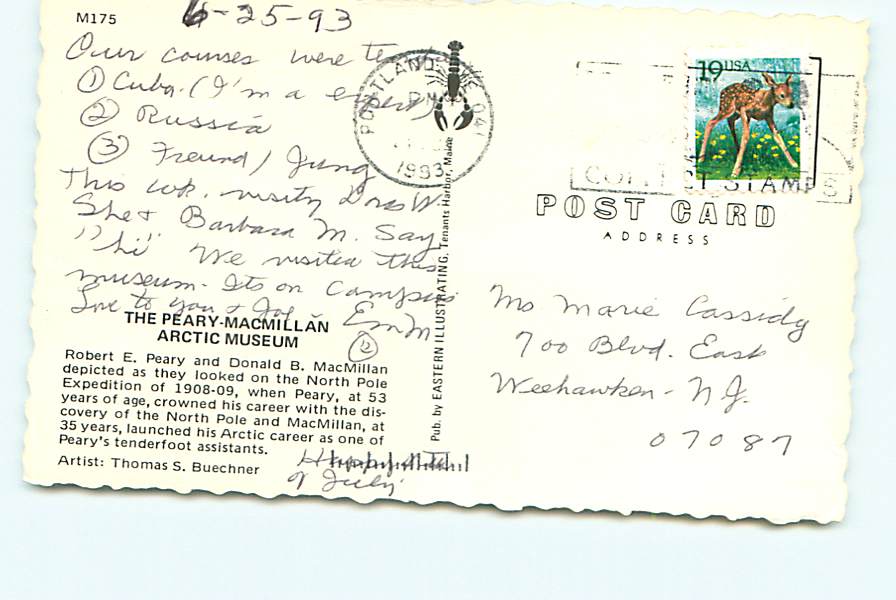 M175
6-25-93
Our courses were
① Cuba. (I'm a expert)
② Russia
③ Freund / Jung
This wk. visity W.
She & Barbara M. Say
"hi" We visited this
museum. Its on Campus
Love to you & Joe - Em M
⑫
THE PEARY-MACMILLAN
ARCTIC MUSEUM
Robert E. Peary and Donald B. MacMillan
depicted as they looked on the North Pole
Expedition of 1908-09, when Peary, at 53
years of age, crowned his career with the dis-
covery of the North Pole and MacMillan, at
35 years, launched his Arctic career as one of
Peary's tenderfoot assistants.
Artist: Thomas S. Buechner
Happy
of July
Pub. by EASTERN ILLUSTRATING, Tenants Harbor, Maine
PORTLAND, ME 041
PM
1993
19 USA
STAMPS
POST CARD
ADDRESS
Ms Marie Cassidy
700 Blvd. East
Weehawken - N.J.
07087